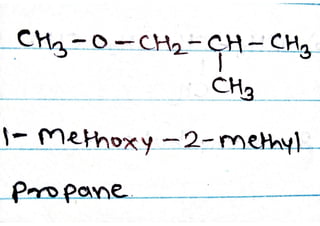 CH3-O-CH2-CH-CH3
|
CH3
1-Methoxy-2-methyl
propane.